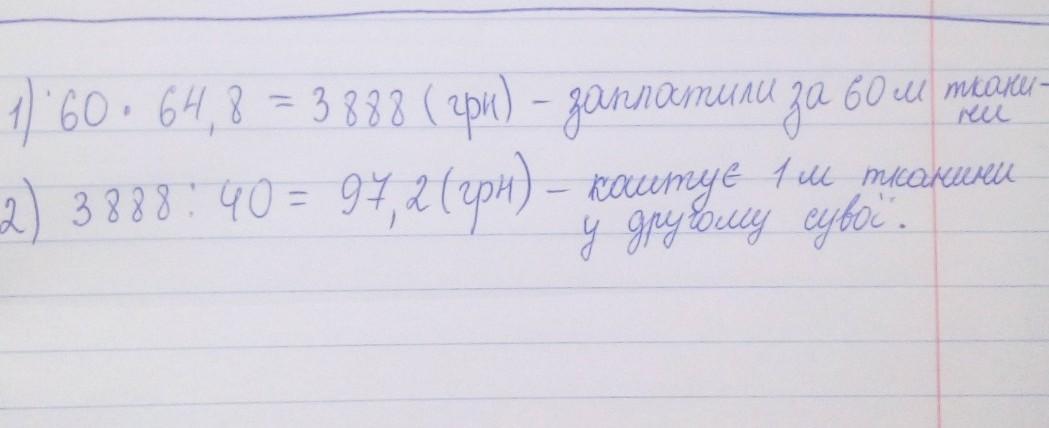 1) 60 · 64,8 = 3888 (грн) – заплатили за 60 м ткани-
ни
2) 3888 : 40 = 97,2 (грн) – коштує 1 м тканини
у другому сувої.